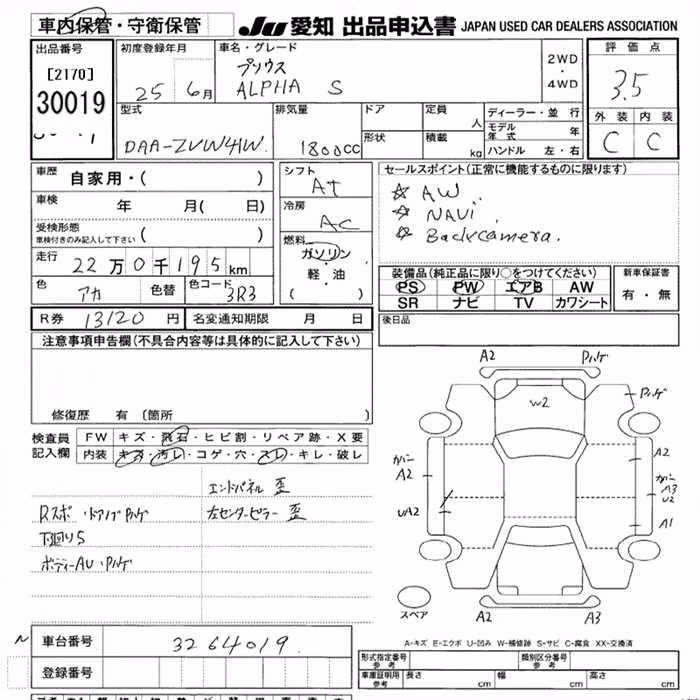 車内保管・守衛保管
JU 愛知 出品申込書 JAPAN USED CAR DEALERS ASSOCIATION
出品番号
[2170]
30019
初度登録年月
25 6月
車名・グレード
プリウス
ALPHA S
2WD
・
4WD
評価点
3.5
外装 内装
C C
型式
DAA-ZVW41W
排気量
1800cc
ドア
形状
定員 人
積載 kg
ディーラー・並行
モデル年式 年
ハンドル 左・右
車歴
自家用・( )
車検 年 月( 日)
受検形態
車検付きのみ記入して下さい ( )
走行 22万0千195km
色 アカ 色替 色コード 3R3
シフト
AT
冷房
AC
燃料
ガソリン
・
軽・油
( )
セールスポイント(正常に機能するものに限ります)
☆ AW
☆ NAVi
☆ Backcamera.
装備品(純正品に限り○をつけてください)
PS PW エアB AW
SR ナビ TV カワシート
新車保証書
有・無
R券 13120円 名変通知期限 月 日
後日品
注意事項申告欄(不具合内容等は具体的に記入して下さい)
修復歴 有〔箇所
検査員記入欄
FW キズ・飛石・ヒビ割・リペア跡・X要
内装 キズ・汚レ・コゲ・穴・スレ・キレ・破レ
エンドパネル 歪
Rスポ・ドアノブ ハゲ
左センターピラー 歪
下廻りS
ボディーAU・ハゲ
A2 ハゲ
W2
ハゲ
カバー
A2
A2
カバー
A3
U2
UA2
A1
スペア
A2 A3
A-キズ E-エクボ U-凹み W-補修跡 S-サビ C-腐食 XX-交換済
N 車台番号 3264019
登録番号
形式指定番号
参考
類別区分番号
参考
車庫証明用
参考
長さ cm 幅 cm 高さ cm